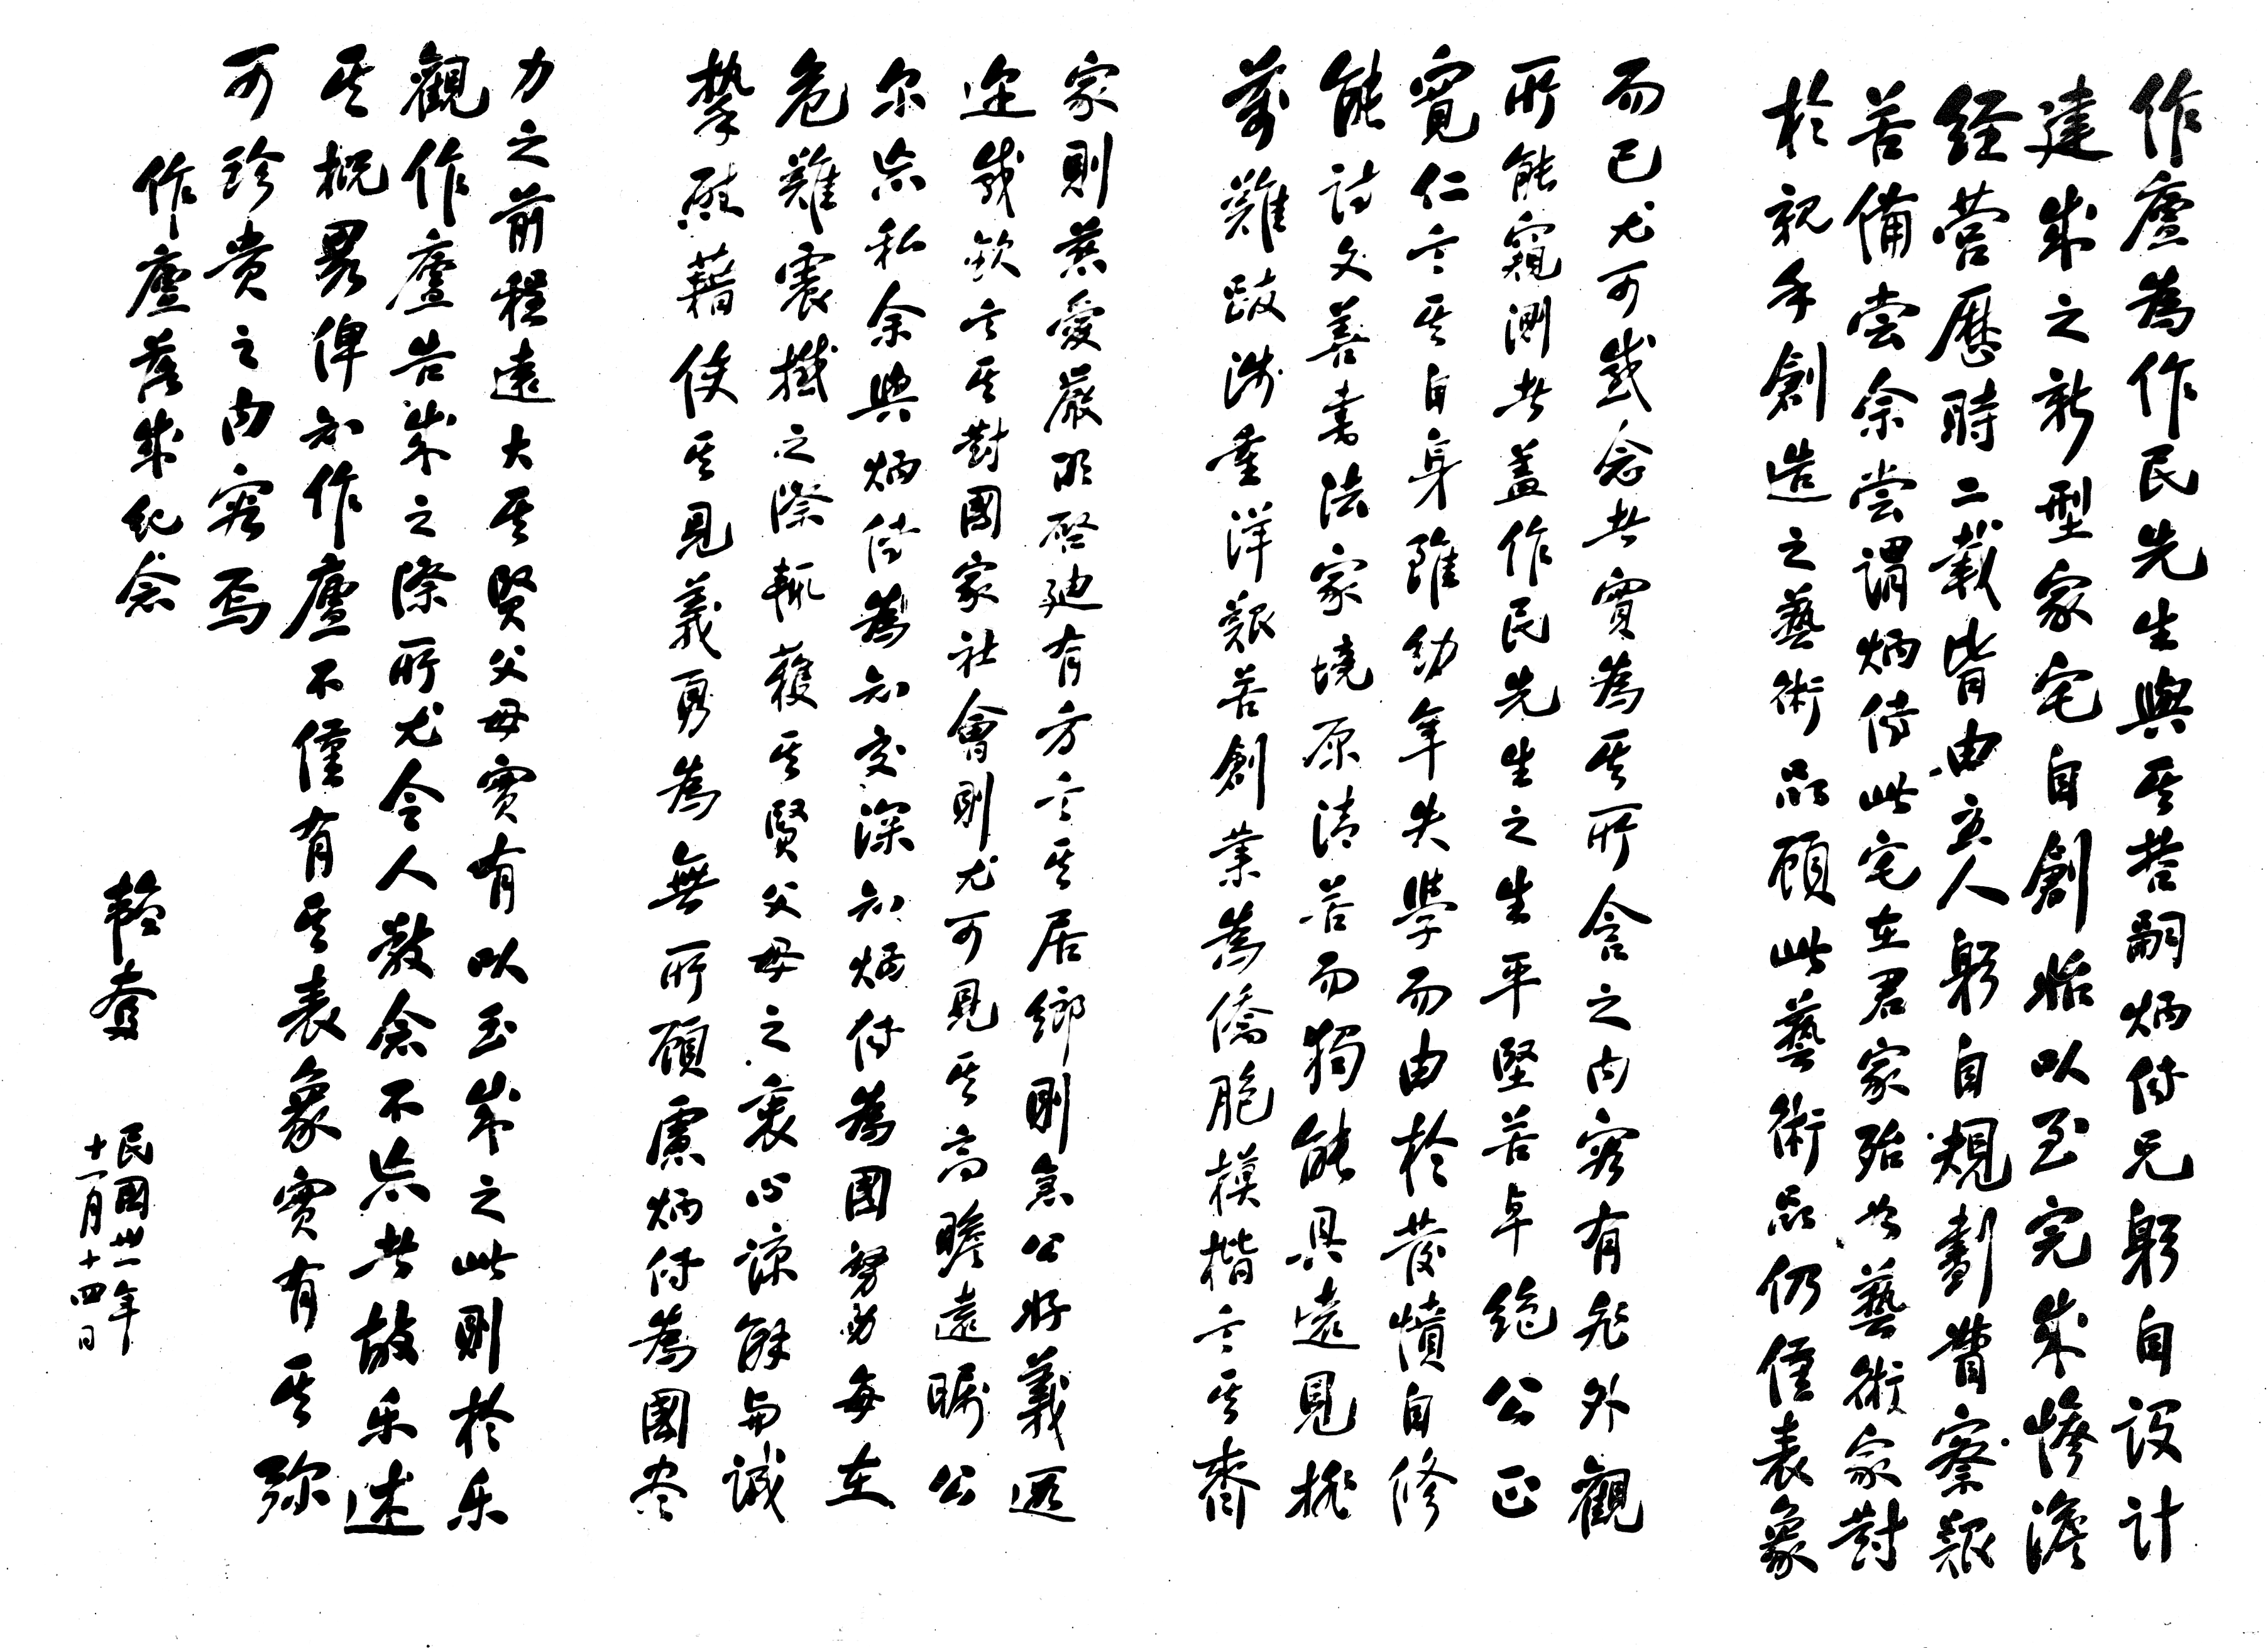 作廬為作民先生與其哲嗣炳侍兄躬自設计
建成之新型家宅自創始以至完成慘澹
经营歷時二載皆由主人躬自規劃督察艱
苦備尝余尝謂炳侍此宅在君家殆如藝術家對
於親手創造之藝術品顾此藝術品仍僅表象
而已尤可感念者實為其所含之内容有非外觀
所能窺測者盖作民先生之生平堅苦卓绝公正
寬仁言其自身雖幼年失學而由於發憤自修
能詩文善書法家境原清苦而獨能具遠見排
萬難跋涉重洋艱苦創業為僑胞模楷言其齊
家則慈愛嚴明啓迪有方言其居鄉則急公好義遐
迩感欽言其對國家社會則尤可見其高瞻遠瞩公
尔忘私余與炳侍為知交深知炳侍為國努力每在
危難震撼之際輒獲其賢父母之衷心諒解與誠
摯慰藉使其見義勇為無所顾慮炳侍為國尽
力之前程遠大其贤父母實有以玉成之此則於乐
觀作廬告成之際所尤令人敬念不忘者故乐述
其概畧俾知作廬不僅有其表象實有其弥
可珍贵之内容焉
作廬落成纪念
韜奮
民國卅一年
十一月十四日